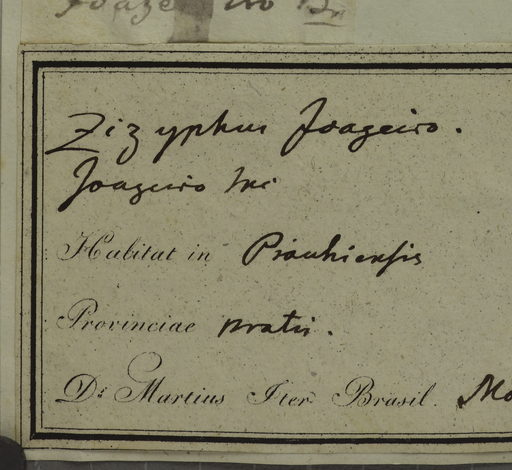 Joaze
Zizyphus Joazeiro.
Joazeiro
Habitat in Piauhiensis
Provinciae pratis.
Dr Martius Iter Brasil. Ma